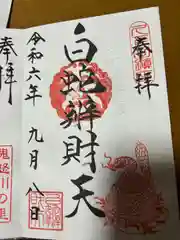 奉拝
白蛇辨財天
令和六年
九月八日
奉拝
鬼怒川の里